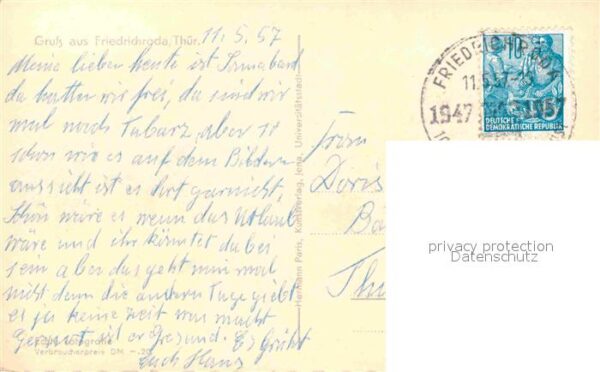 Gruß aus Friedrichroda, Thür. 11.5.57
Meine lieben heute ist Sonnabend
da hatten wir frei, da sind wir
mal nach Tabarz, aber so
schön wie es auf dem Bild
aussieht ist es dort garnicht,
Schön wäre es wenn das Urlaub
wäre und ihr könntet dabei
sein aber das geht nun mal
nicht denn die andern Tage giebt
es ja keine zeit was macht
ist er Gesund. Es Grüßt
Euch Hans
Echte Fotografie
Verbraucherpreis DM -.20
Hermann Paris, Kunstverlag, Jena, Universitätsstadt
FRIEDRICHRODA
11.5.57
1947 1957
10
DEUTSCHE
DEMOKRATISCHE REPUBLIK
Frau
Doris
Thü
privacy protection
Datenschutz